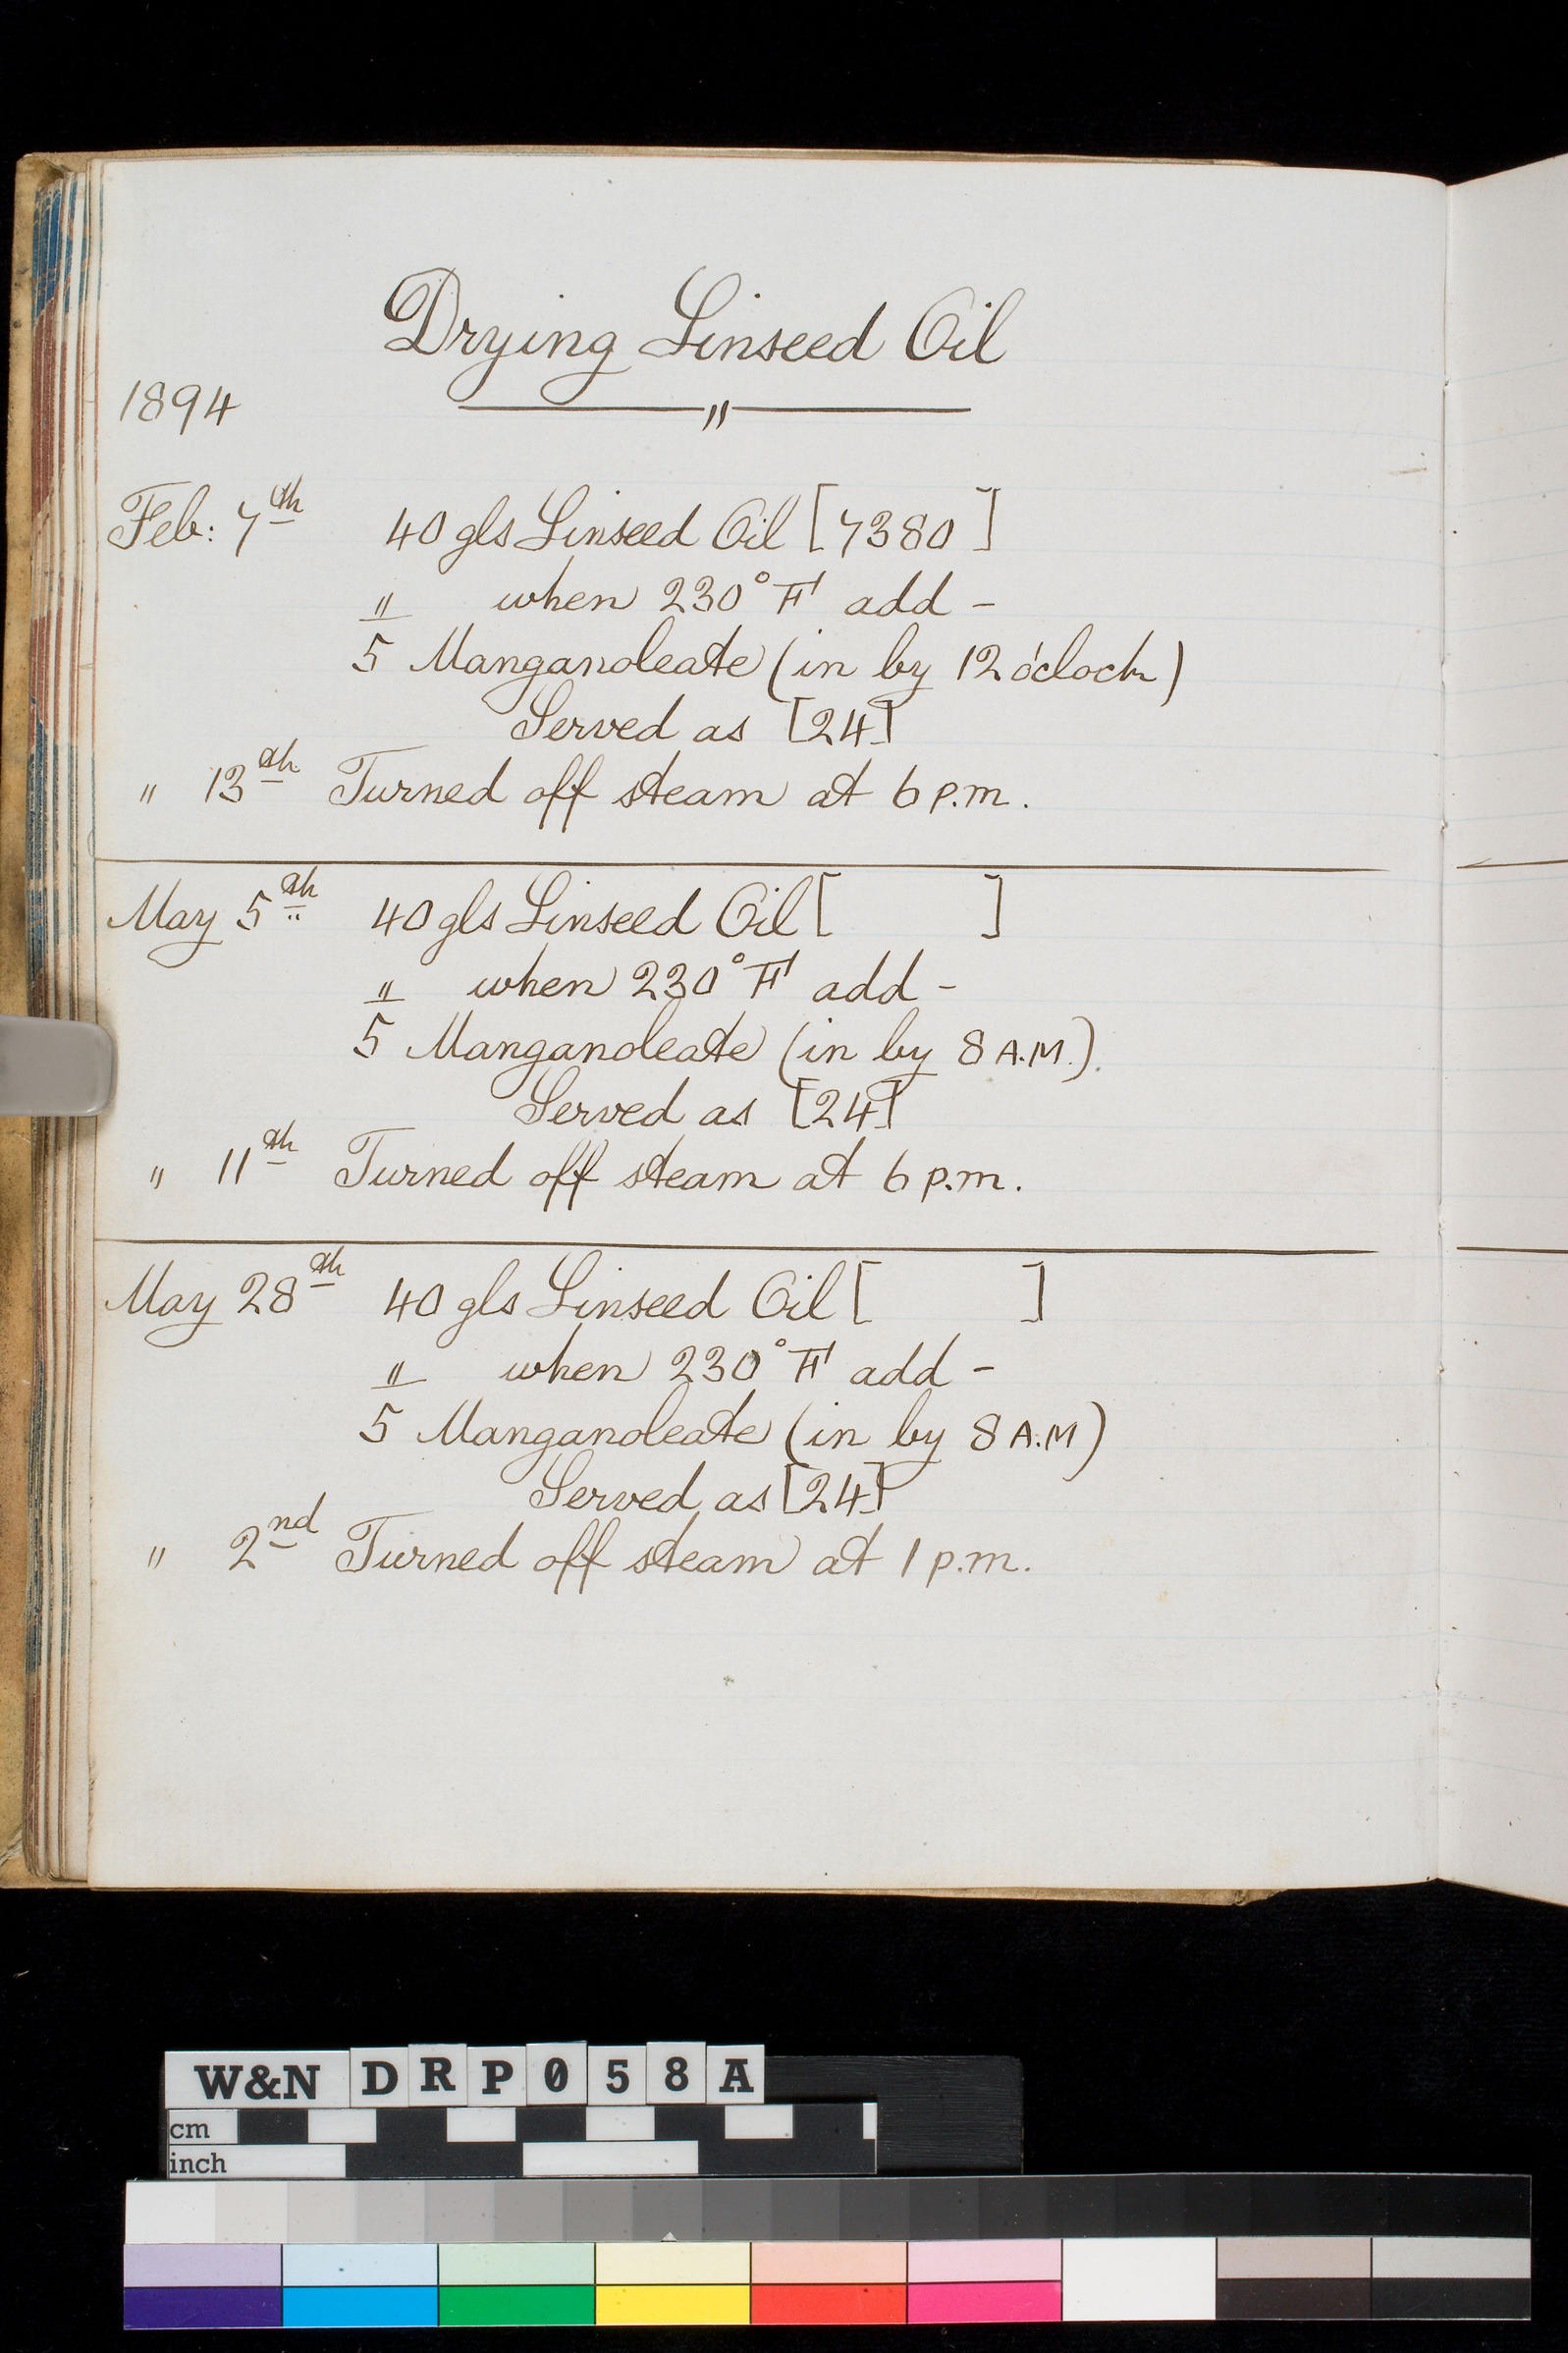 Drying Linseed Oil
1894
"
Feb: 7th 40 gls Linseed Oil [7380]
" when 230° F add -
5 Manganoleate (in by 12 o'clock)
Served as [24]
" 13th Turned off steam at 6 p.m.
May 5th 40 gls Linseed Oil [ ]
" when 230° F add -
5 Manganoleate (in by 8 A.M.).
Served as [24]
" 11th Turned off steam at 6 p.m.
May 28th 40 gls Linseed Oil [ ]
" when 230° F add -
5 Manganoleate (in by 8 A.M)
Served as [24]
" 2nd Turned off steam at 1 p.m.
W&N DRP058A
cm
inch